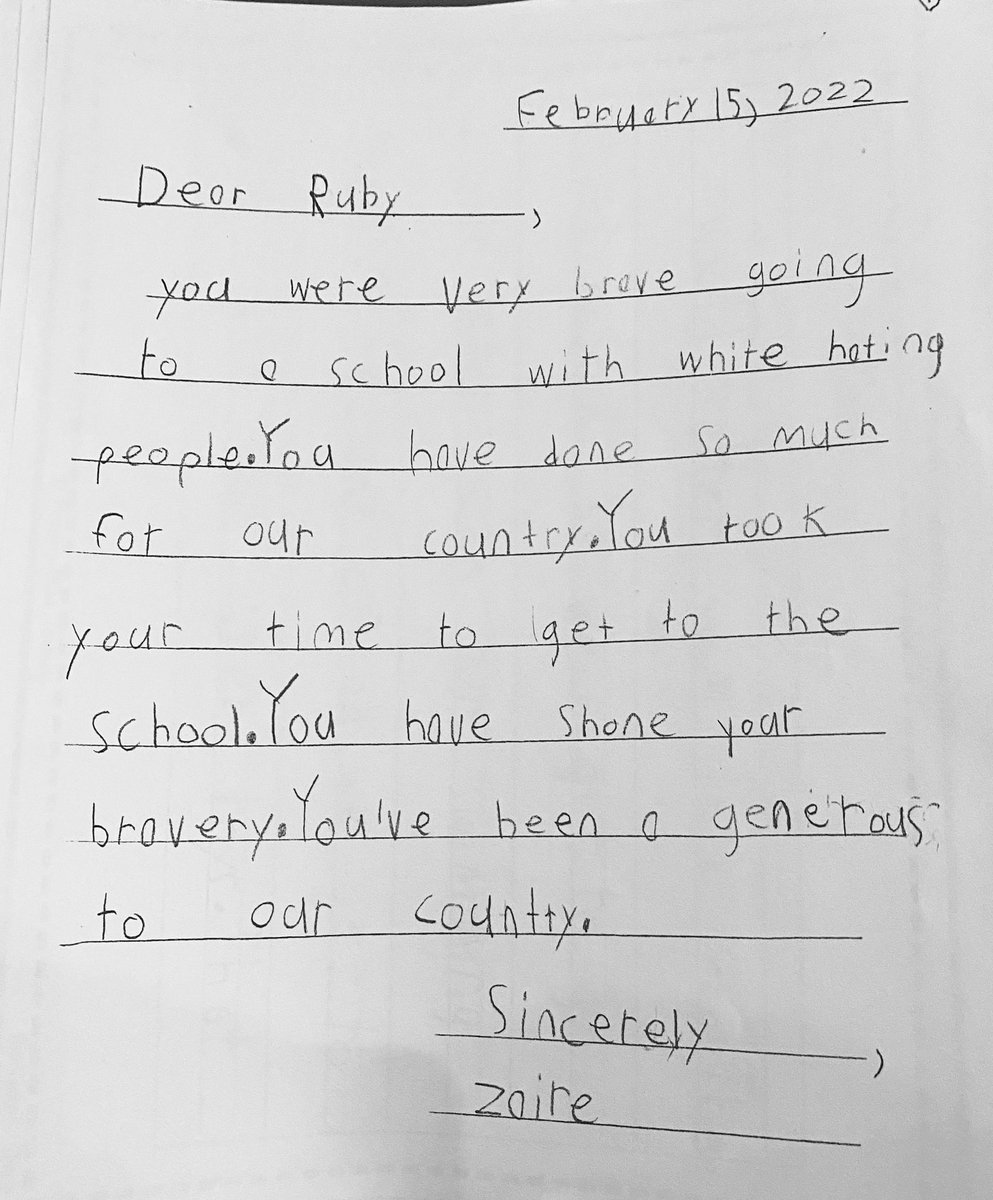 February 15, 2022
Dear Ruby,
you were very brave going
to a school with white hating
people. You have done so much
for our country. You took
your time to get to the
school. You have shone your
bravery. You've been a generous
to our country.
Sincerely,
zaire